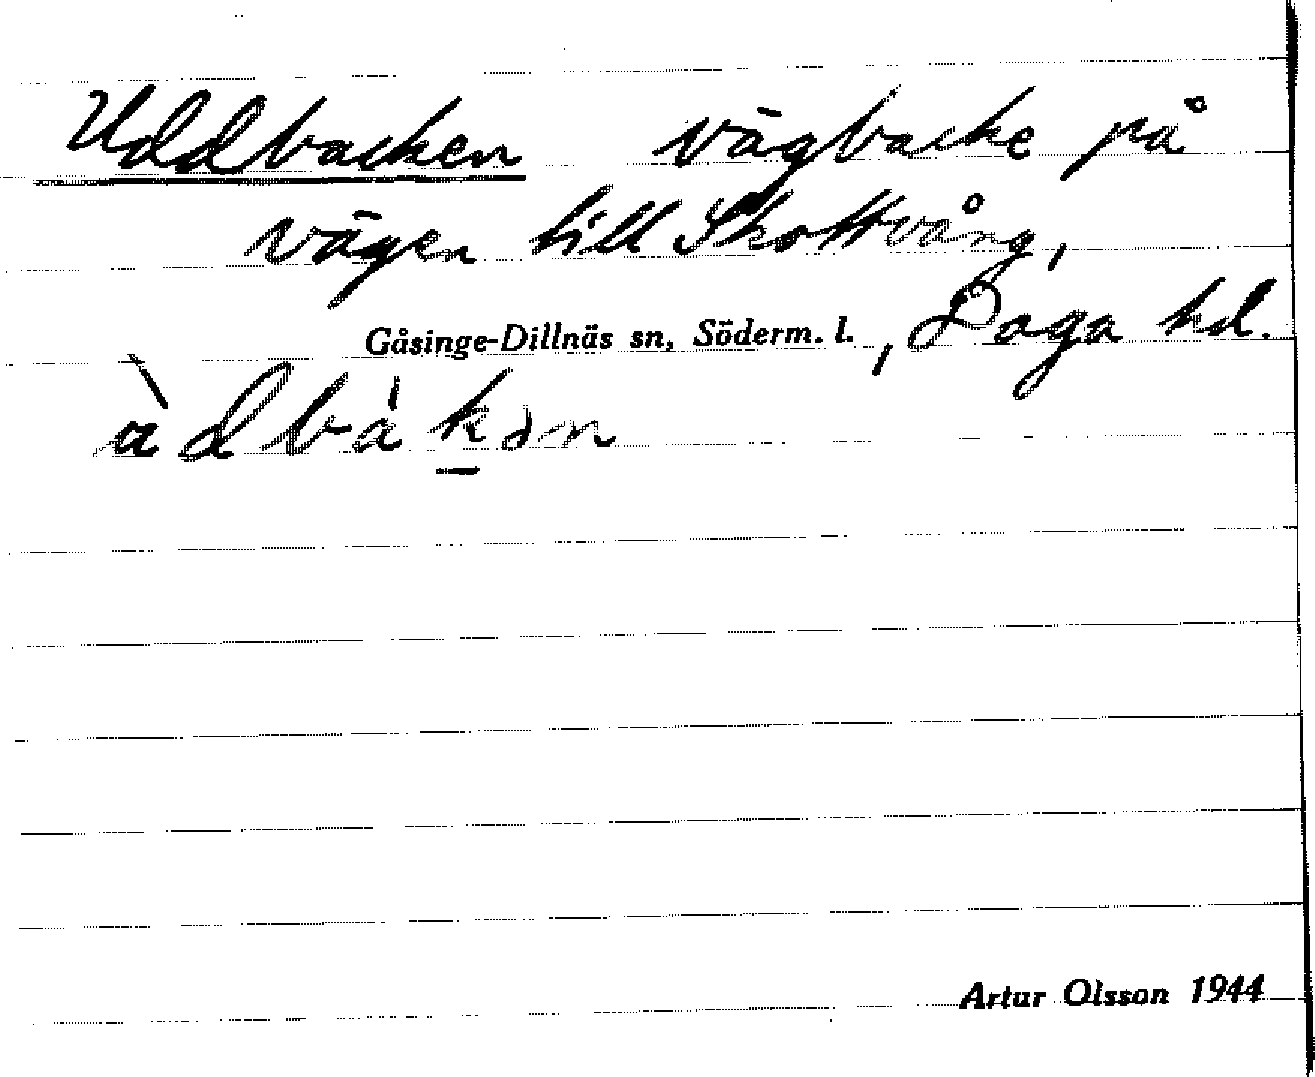 Uddbacken vägbacke på
vägen till Skottvång,
Gåsinge-Dillnäs sn, Söderm. l., Daga hd.
Artur Olsson 1944